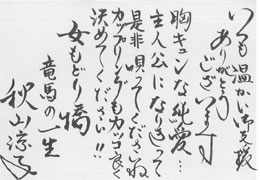 いつも温かい御支援
ありがとう
ございます
胸キュンな純愛…
主人公になりきって
是非唄ってくださいね
カップリングもカッコ良く
決めてください!!
女もどり橋
竜馬の一生
秋山涼子